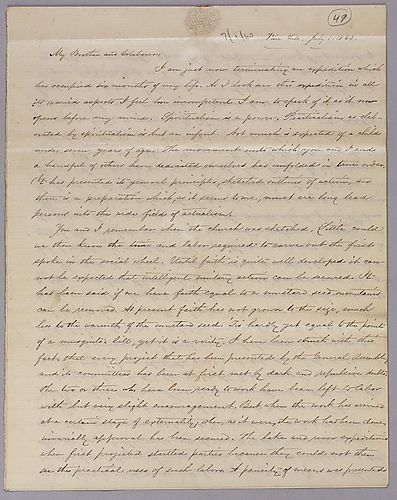 49
7/1/60 Kiantone, July 1, 1860.
My Brother and Colaborer:
I am just now terminating an expedition which
has occupied six months of my life. As I look over this expedition in all
its varied aspects I feel too incompetent I am to speak of it as it now
opens before my mind. Spiritualism is a power. Spiritualism as cul-
tivated by spiritualists is but an infant. Not much is expected of a child
under seven years of age. The movement unto which you and I and
a handful of others have dedicated ourselves has unfolded in true order.
It has presented its general principles, sketched outlines of action, and
there is a preparation which, as it seems to me, must ere long lead
persons into the wide field of actualism.
You and I remember when the church was sketched. Little could
we then know the time and labor required to carve out the first
spoke in the social wheel. Until faith is quite well developed it can
not be expected that intelligent unitary action can be secured. It
has been said if we have faith equal to a mustard seed, mountains
can be removed. At present faith has not grown to the size, much
less to the warmth of the mustard seed. 'Tis hardly yet equal to the point
of a musquito's bite, yet it is a verity. I have been struck with this
fact, that every project that has been presented by the General Assembly
and its committees has been at first met by dark and repulsive doubts.
The two or three who have been ready to work have been left to labor
with but very slight encouragement. But when the work has arrived
at a certain stage of externality, when, as it were, the work has been done,
invariably approval has been secured. The lake and river expeditions
when first projected startled parties because they could not then
see the practical uses of such labors. A paucity of means was presented